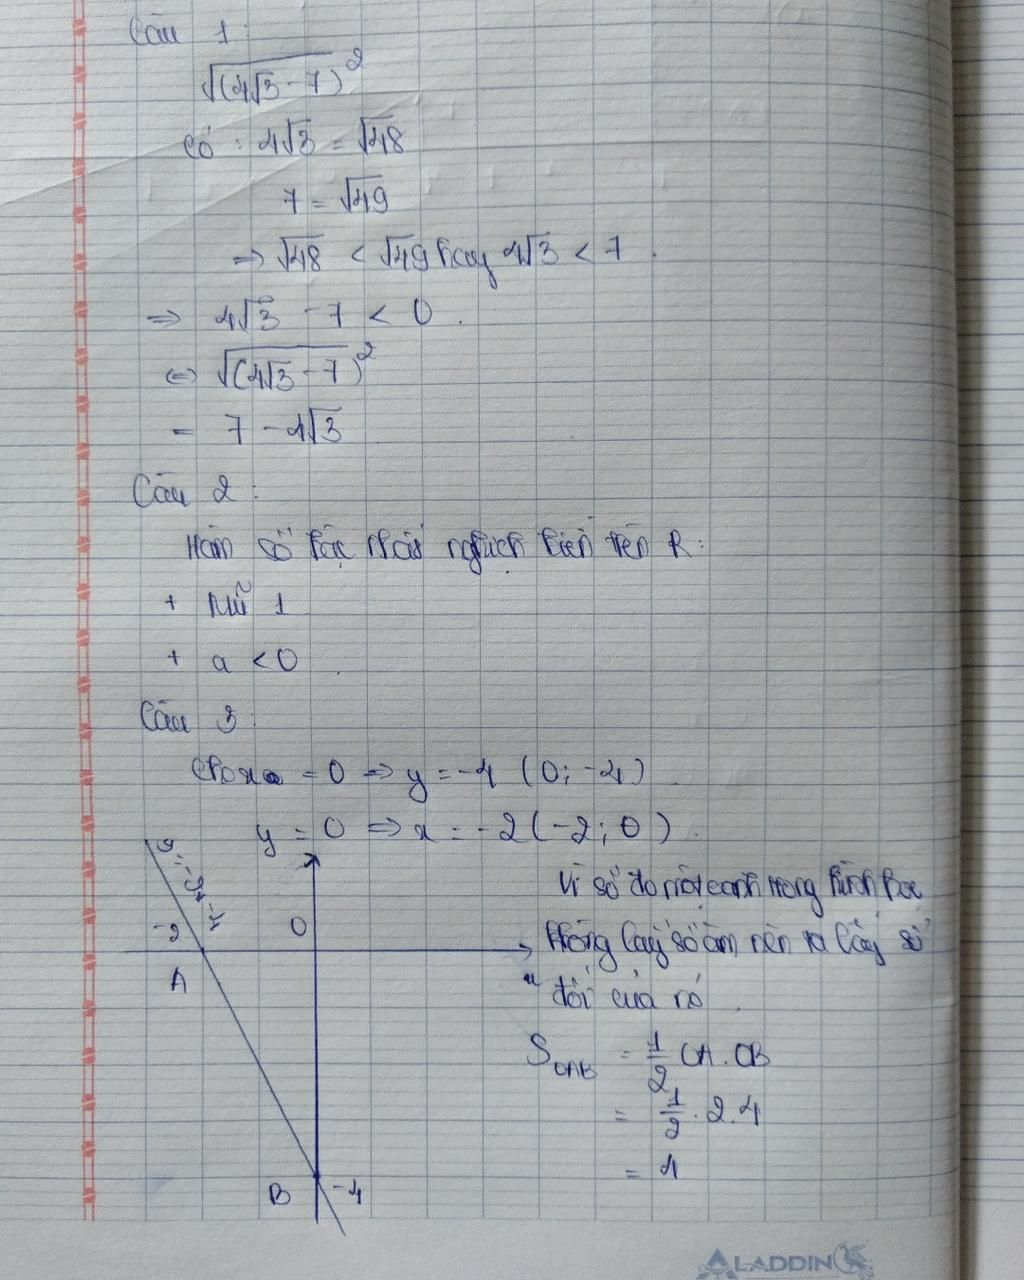 Câu 1:
√(4√3 - 7)²
Có : 4√3 = √48
7 = √49
=> √48 < √49 hay 4√3 < 7 .
=> 4√3 - 7 < 0 .
<=> √(4√3 - 7)²
= 7 - 4√3
Câu 2 :
Hàm số bậc nhất nghịch biến trên R :
+ Mũ 1
+ a < 0
Câu 3 :
Cho x = 0 => y = -4 (0; -4)
y = 0 => x = -2 (-2; 0) .
y = -2x - 4
-2
O
A
x
B
-4
Vì số đo một cạnh trong hình học
không lấy số âm nên ta lấy số
đối của nó .
S OAB = 1/2 OA . OB
= 1/2 . 2 . 4
= 4
ALADDIN